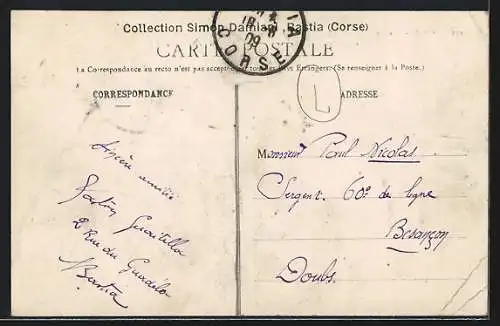 Collection Simon Damiani, Bastia (Corse)
CARTE POSTALE
La Correspondance au recto n'est pas acceptée Pays Etrangers (Se renseigner à la Poste.)
CORRESPONDANCE
ADRESSE
BASTIA
18
09
CORSE
L
Sincère amitié
2 Rue du
Bastia
Monsieur Paul Nicolas
Sergent 60e de ligne
Besançon
Doubs